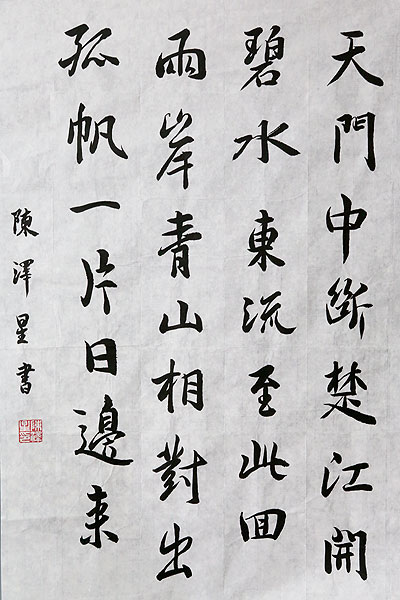 天門中断楚江開
碧水東流至此囬
兩岸青山相對出
孤帆一片日邊来
陳澤星書